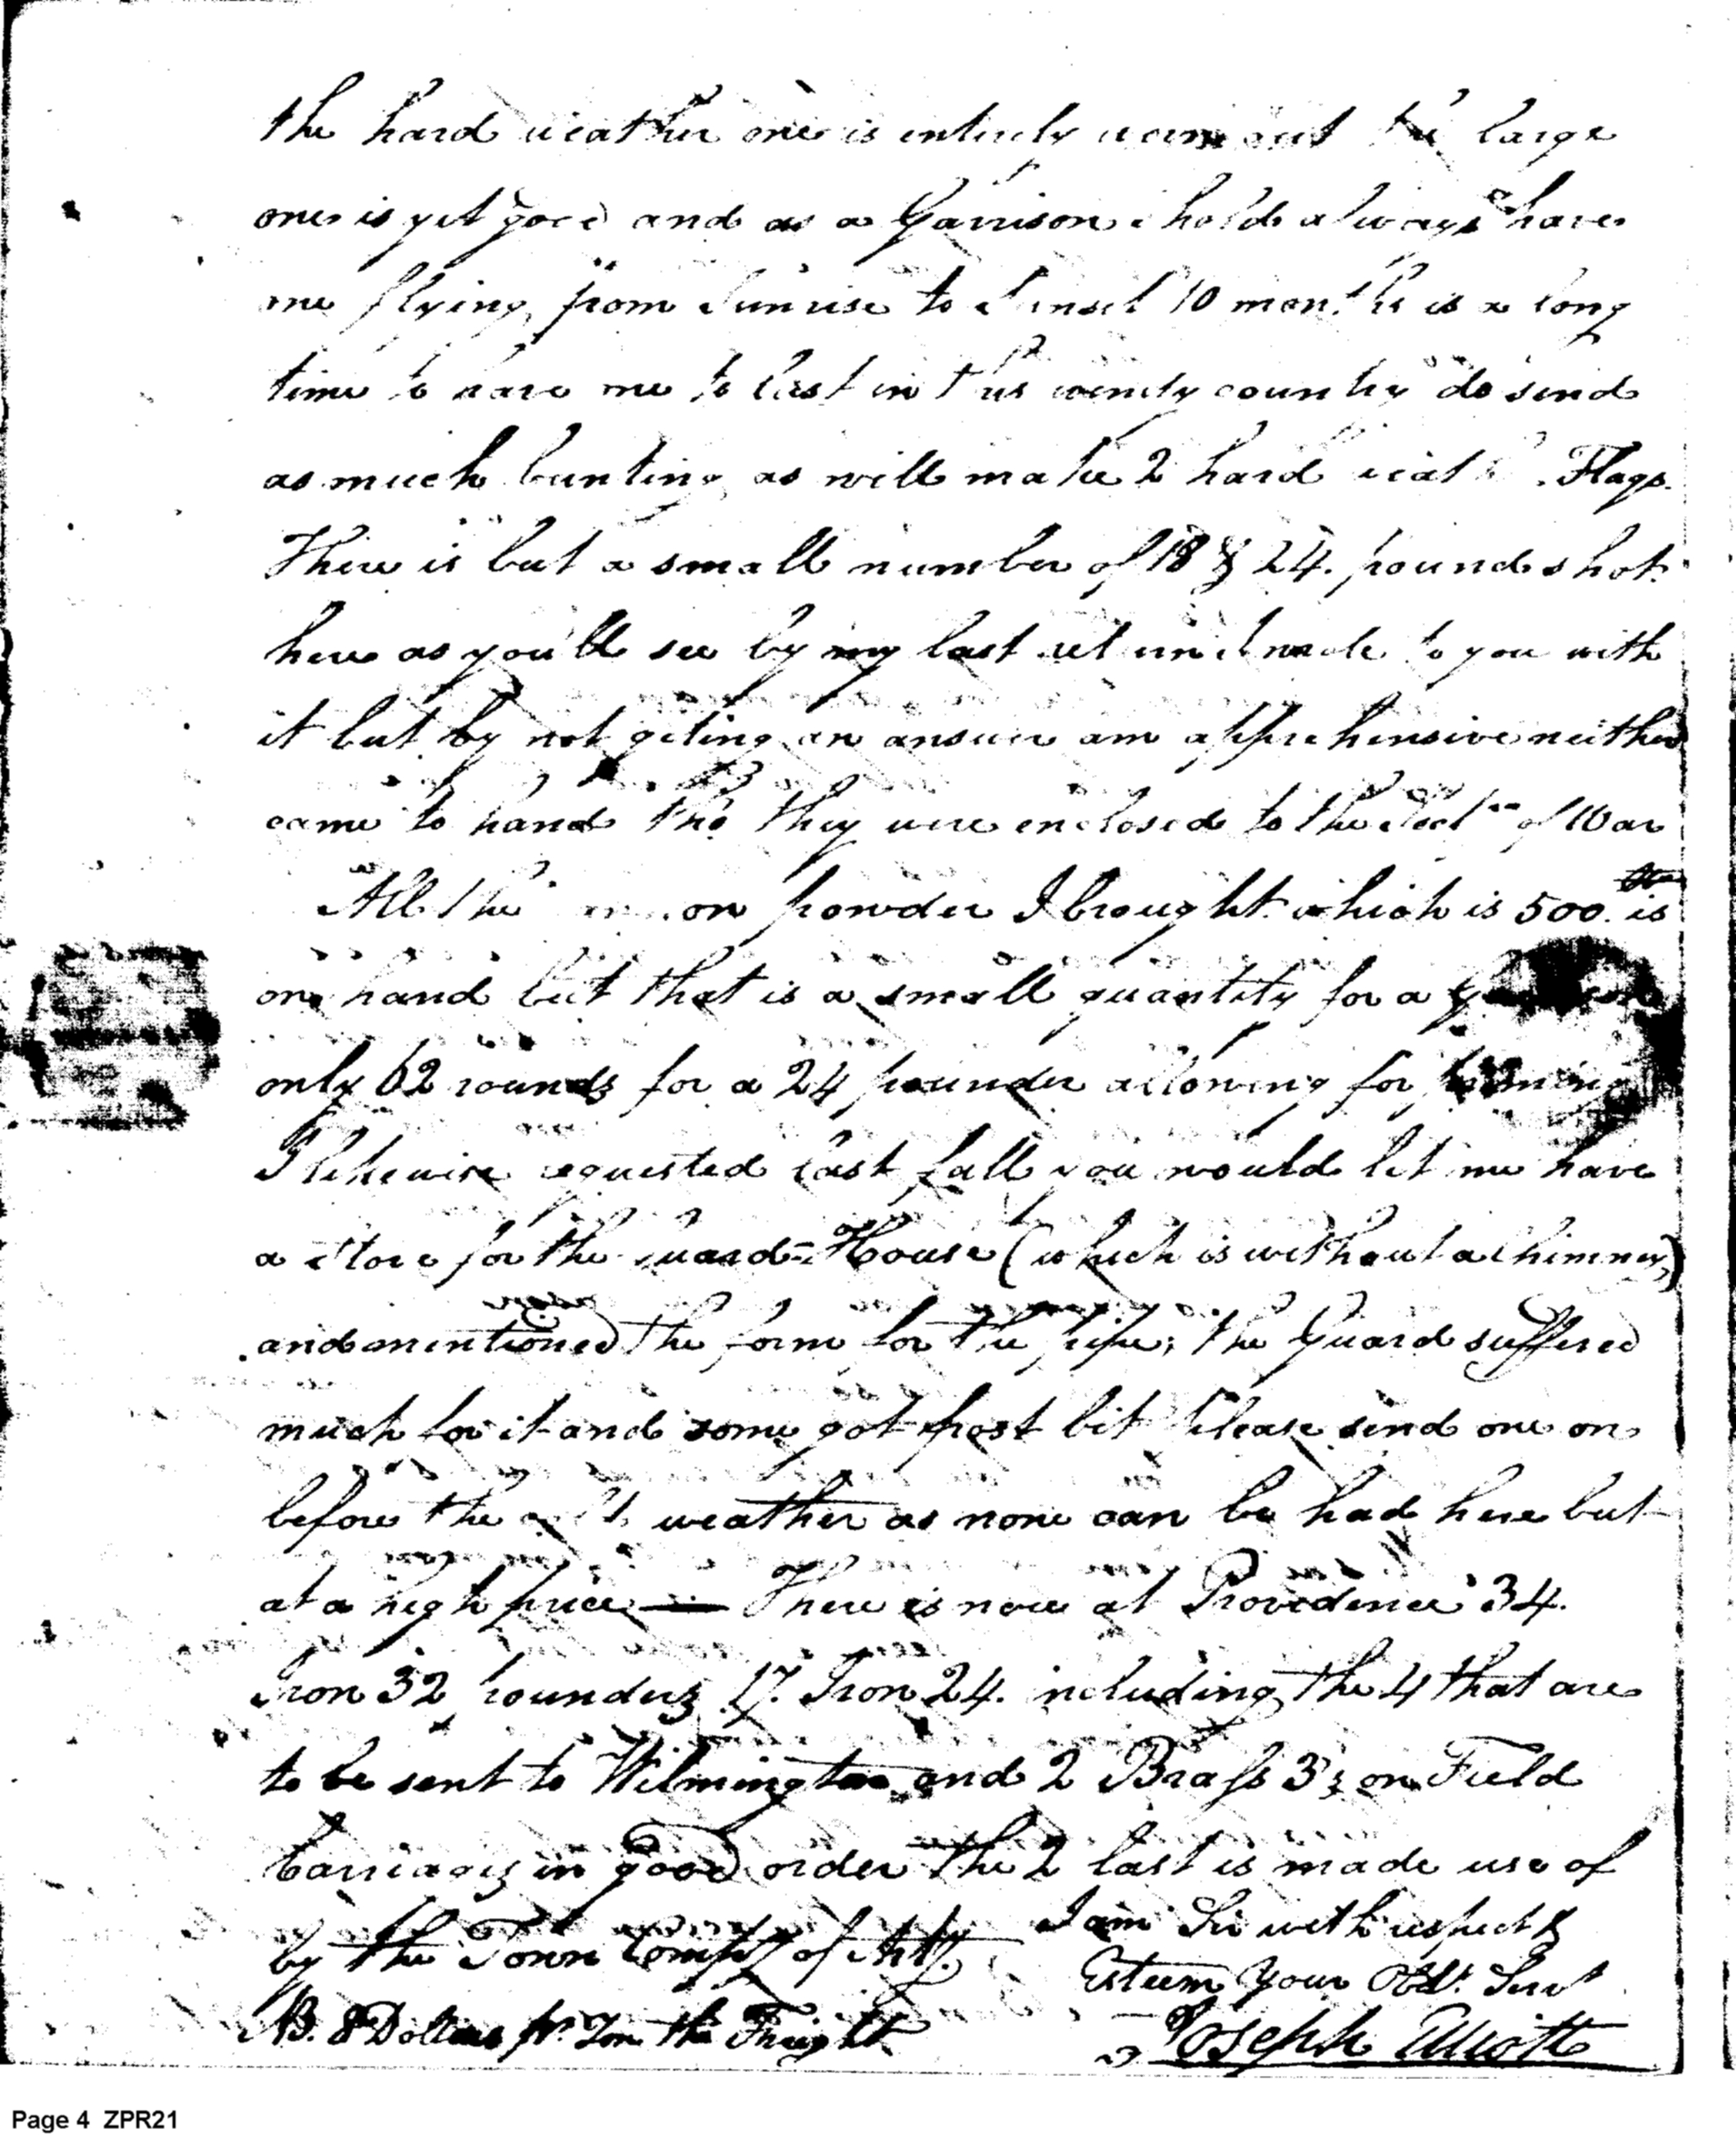 the hard weather one is entirely worn out the large
one is yet good and as a Garrison shold always have
one flying from Sunrise to Sunset 10 months is a long
time to have one to last in this windy country do send
as much bunting as will make 2 hard weath Flags.
There is but a small number of 18 & 24. pound shot
here as you'll see by my last return I made to you with
it but by not geting an answer am apprehensive neither
came to hand tho' they were enclosed to the Sect of War
All the on powder I brought which is 500. is
on hand but that is a small quantity for a
only 62 rounds for a 24 pounder allowing for priming
I likewise requested last fall you would let me have
a stove for the Guard-House (which is without a Chimney)
and mentioned the form for the pipe; the Guard suffered
much for it and some got frost bit Please send one on
before the cold weather as none can be had here but
at a high price — There is now at Providence 34.
Iron 32 pounders 17. Iron 24. including the 4 that are
to be sent to Wilmington and 2 Brass 3's on Field
Carriages in good order the 2 last is made use of
by the Town Compy of Arty.
I am Sir with respect &
Esteem Your Obdt. Servt
NB. 8 Dollars pr. Ton the Freight
Joseph Elliott
Page 4 ZPR21